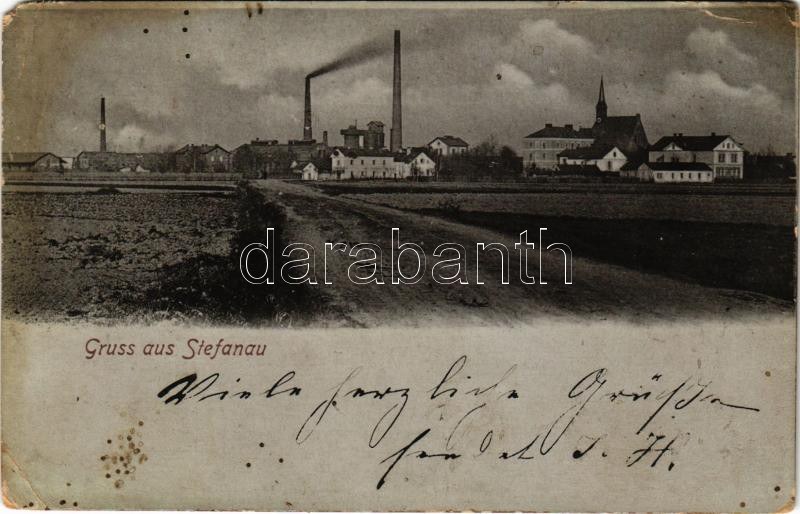 darabanth
Gruss aus Stefanau
Viele herzliche Grüße
sendet J. H.